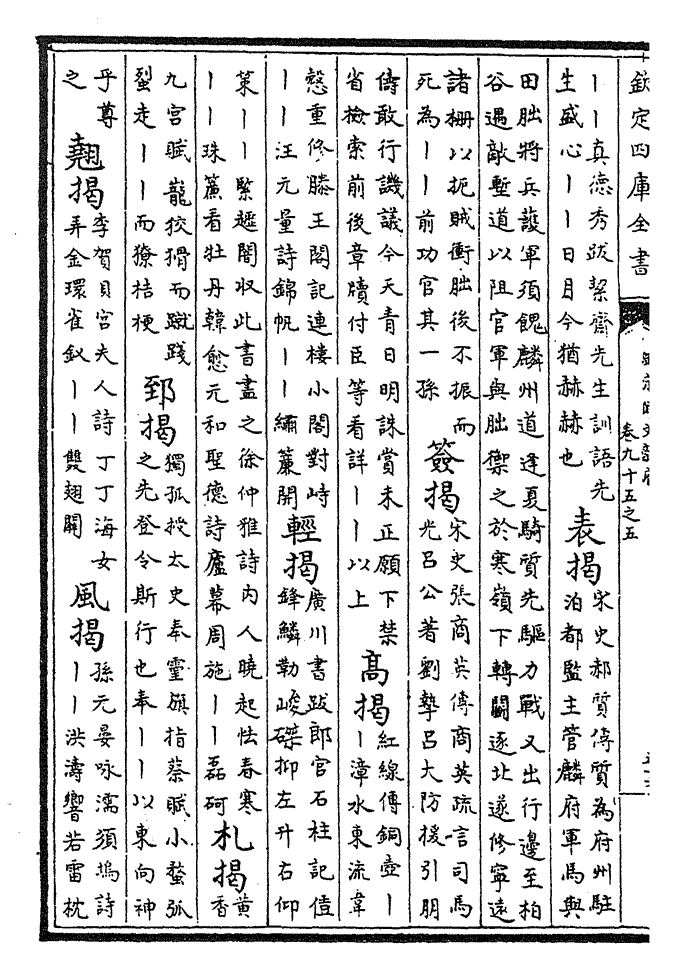 欽定四庫全書
卷九十五之五
丨丨真德秀跋絜齋先生訓語先
生盛心丨丨日月今猶赫赫也
表揭
宋史郝質傳質為府州駐
泊都監主管麟府軍馬與
田朏將兵護軍須餽麟州道逢夏騎質先驅力戰又出行邊至柏
谷遇敵塹道以阻官軍與朏禦之於寒嶺下轉鬭逐北遂修寧遠
諸栅以扼賊衝朏後不振而
死為丨丨前功官其一孫
簽揭
宋史張商英傳商英疏言司馬
光呂公著劉摯呂大防援引朋
儔敢行譏議今天青日明誅賞未正願下禁
省檢索前後章牘付臣等看詳丨丨以上
高揭
紅線傳銅壺丨
丨漳水東流韋
愨重修滕王閣記連樓小閣對峙
丨丨汪元量詩錦帆丨丨繡簾開
輕揭
廣川書跋郎官石柱記值
鋒鱗勒峻磔抑左升右仰
策丨丨緊趯闇收此書盡之徐仲雅詩内人曉起怯春寒
丨丨珠簾看牡丹韓愈元和聖德詩廬幕周施丨丨磊砢
札揭
黃
香
九宮賦巃狡猾而蹴踐
蚩走丨丨而獠桔梗
郅揭
獨孤授太史奉靈旗指蔡賦小蝥弧
之先登令斯行也奉丨丨以東向神
乎尊
之
翹揭
李賀貝宮夫人詩丁丁海女
弄金環雀釵丨丨雙翅關
風揭
孫元晏咏濡須塢詩
丨丨洪濤響若雷枕